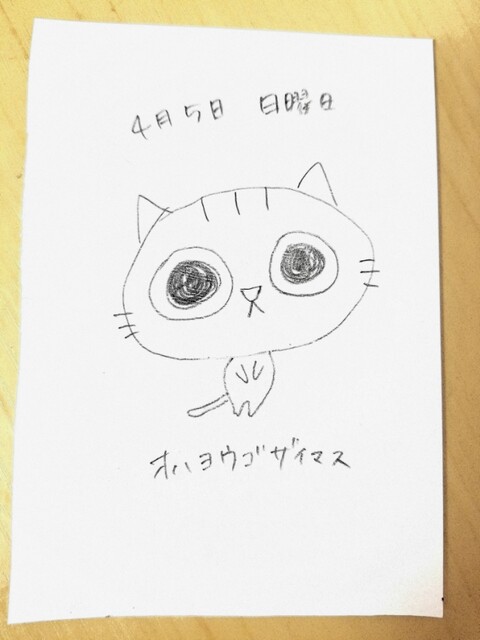 4月5日 日曜日
オハヨウゴザイマス